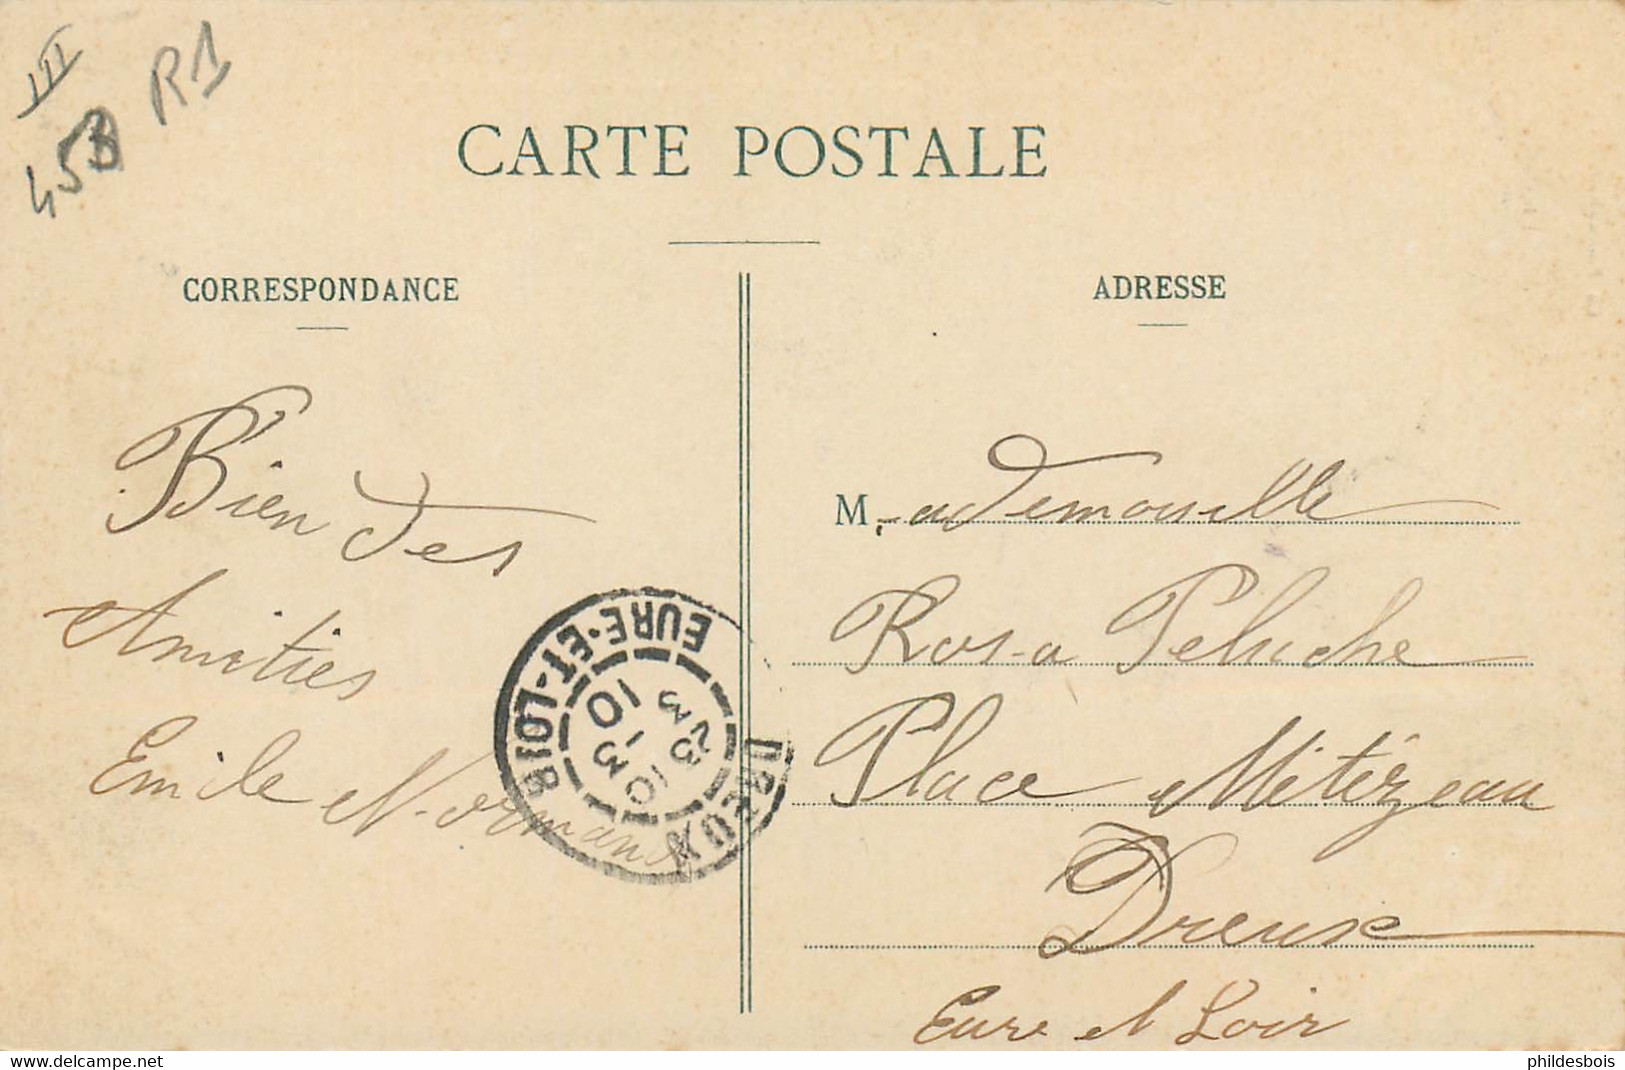 III
45B R1
CARTE POSTALE
CORRESPONDANCE
Bien des
Amitiés
Emile Normand
ADRESSE
Mademoiselle
Rosa Peluche
Place Métézeau
Dreux
Eure et Loir
DREUX
EURE-ET-LOIR
10
23 - 3
10
delcampe.net
phildesbois